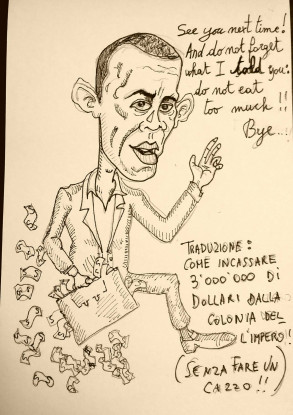 See you next time!
And do not forget
what I told you:
do not eat
too much!!
Bye...
TRADUZIONE:
COME INCASSARE
3'000'000 DI
DOLLARI DALLA
COLONIA DEL
L'IMPERO!
(SENZA FARE UN
CAZZO!!)